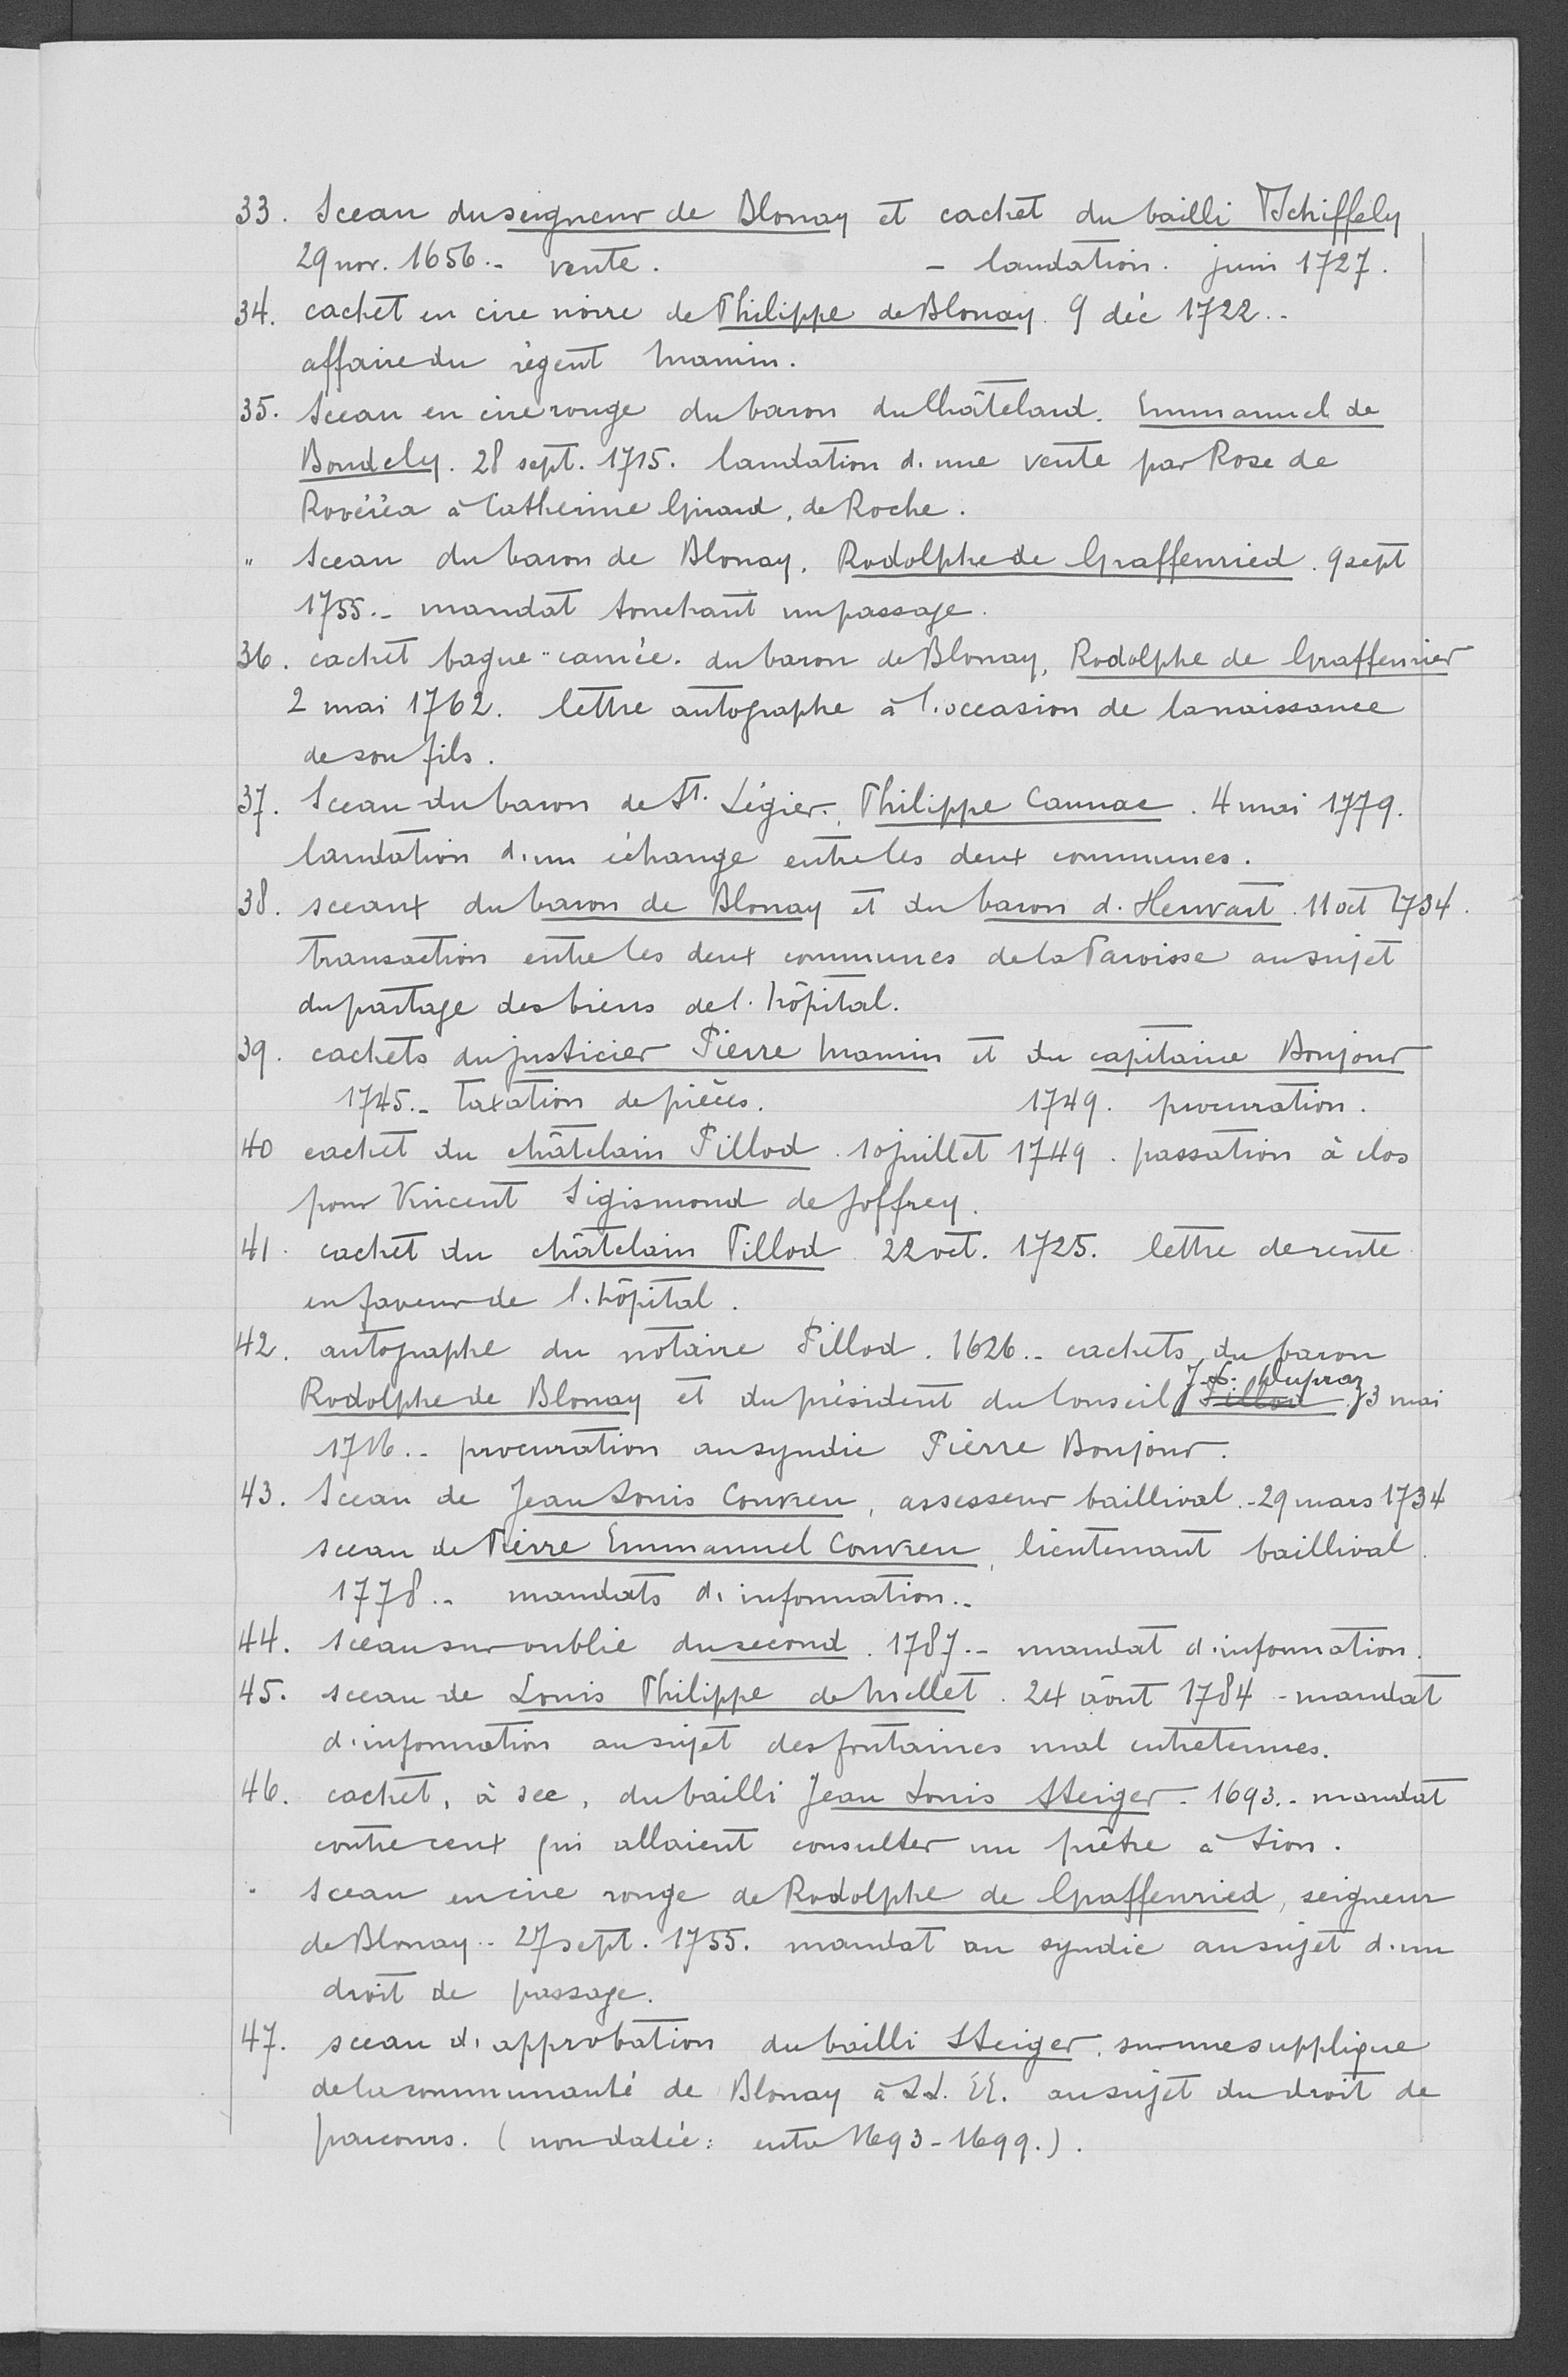 33. Sceau du seigneur de Blonay et cachet du bailli Tschiffely
29 nov. 1656.- vente. - laudation. juin 1727.
34. cachet en cire noire de Philippe de Blonay. 9 déc 1722.-
affaire du régent Mamin.
35. Sceau en cire rouge du baron du Châtelard. Emmanuel de
Bondely. 28 sept. 1715. laudation d'une vente par Rose de
Rovéréa à Catherine Girard, de Roche.
" Sceau du baron de Blonay, Rodolphe de Graffenried. 9 sept
1755.- mandat touchant un passage.
36. cachet bague "camée. du baron de Blonay, Rodolphe de Graffenrier
2 mai 1762. lettre autographe à l'occasion de la naissance
de son fils.
37. Sceau du baron de St. Légier, Philippe Cannac. 4 mai 1779.
laudation d'un échange entre les deux communes.
38. sceaux du baron de Blonay et du baron d'Hervart. 11 oct 1734.
transaction entre les deux communes de la Paroisse au sujet
du partage des biens de l'hôpital.
39. cachets du justicier Pierre Mamin et du capitaine Bonjour
1745.- Taxation de pièces. 1749. procuration.
40 cachet du châtelain Pillod. 10 juillet 1749. passation à clos
pour Vincent Sigismond de Joffrey.
41. cachet du châtelain Pillod 22 oct. 1725. lettre de rente
en faveur de l'hôpital.
42. autographe du notaire Pillod. 1626.- cachets du baron
J.s. Dupraz
Rodolphe de Blonay et du président du Conseil Pillod. 3 mai
1716.- procuration au syndic Pierre Bonjour.
43. Sceau de Jean Louis Couvreu, assesseur baillival.- 29 mars 1734
sceau de Pierre Emmanuel Couvreu, lieutenant baillival.
1778.- mandats d'information.-
44. sceau sur oublie du second. 1787.- mandat d'information.
45. sceau de Louis Philippe de Mellet. 24 août 1784 - mandat
d'information au sujet des fontaines mal entretenues.
46. cachet, à sec, du bailli Jean Louis Steiger. 1693.- mandat
contre ceux qui allaient consulter un prêtre à Sion.
" Sceau en cire rouge de Rodolphe de Graffenried, seigneur
de Blonay.- 27 sept. 1755. mandat au syndic au sujet d'un
droit de passage.
47. sceau d'approbation du bailli Steiger, sur une supplique
de la communauté de Blonay à LL. EE. au sujet du droit de
parcours. (non datée: entre 1693-1699.).